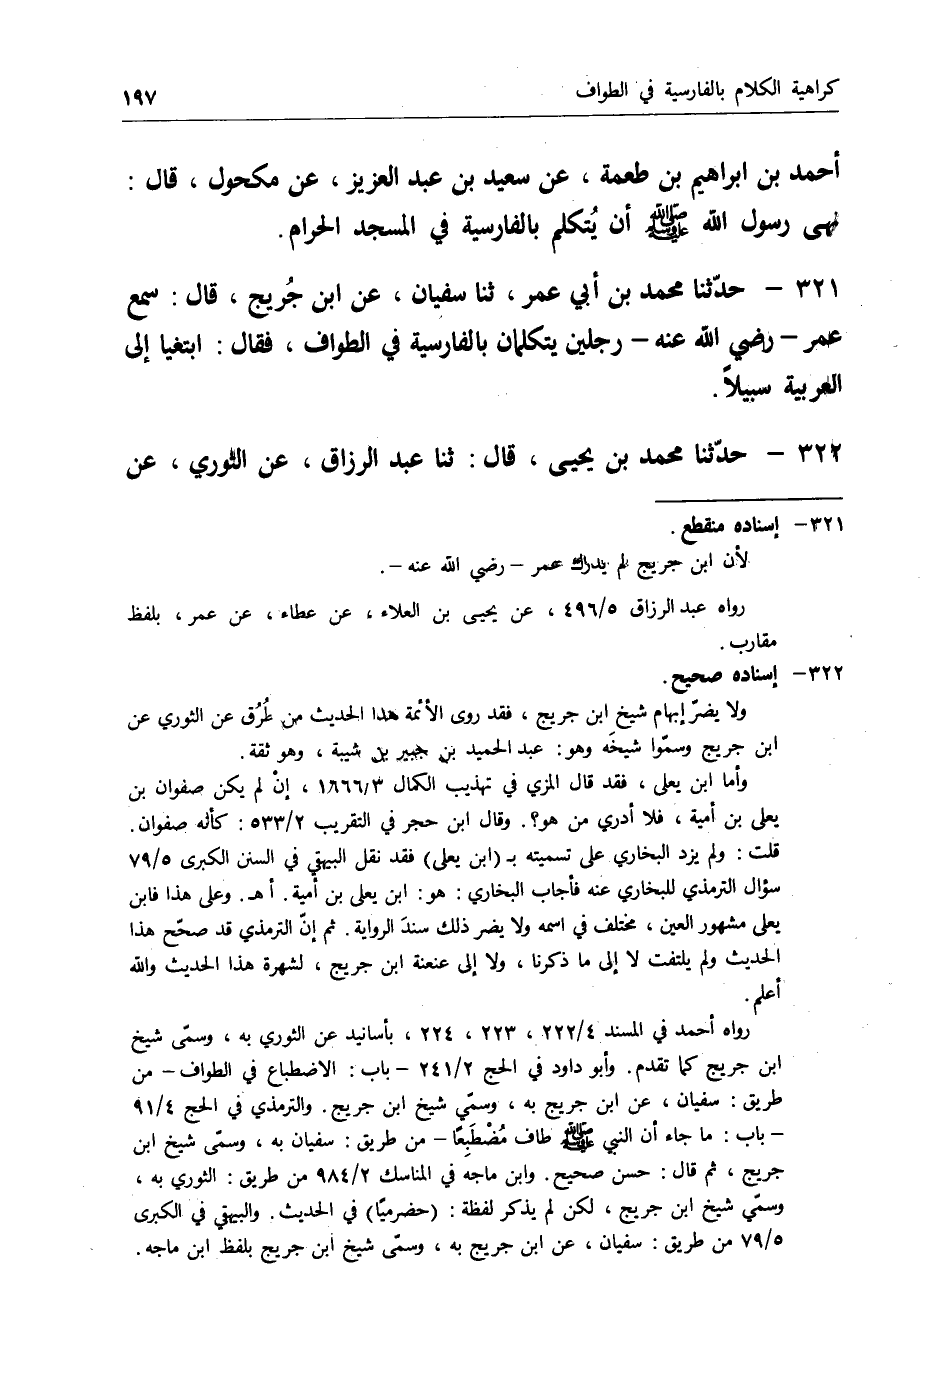 كراهية الكلام بالفارسية في الطواف ١٩٧
أحمد بن ابراهيم بن طعمة ، عن سعيد بن عبد العزيز ، عن مكحول ، قال :
نهى رسول الله ﷺ أن يُتكلم بالفارسية في المسجد الحرام .
٣٢١ – حدّثنا محمد بن أبي عمر ، ثنا سفيان ، عن ابن جُريج ، قال : سمع
عمر – رضي الله عنه – رجلين يتكلمان بالفارسية في الطواف ، فقال : ابتغيا إلى
العربية سبيلاً .
٣٢٢ – حدّثنا محمد بن يحيى ، قال : ثنا عبد الرزاق ، عن الثوري ، عن
٣٢١– إسناده منقطع .
لأن ابن جريج لم يدرك عمر – رضي الله عنه – .
رواه عبد الرزاق ٤٩٦/٥ ، عن يحيى بن العلاء ، عن عطاء ، عن عمر ، بلفظ
مقارب .
٣٢٢– إسناده صحيح .
ولا يضرّ إبهام شيخ ابن جريج ، فقد روى الأئمة هذا الحديث من طُرُق عن الثوري عن
ابن جريج وسمّوا شيخَه وهو : عبد الحميد بن جبير بن شيبة ، وهو ثقة .
وأما ابن يعلى ، فقد قال المزي في تهذيب الكمال ١٦٦٦/٣ ، إنْ لم يكن صفوان بن
يعلى بن أمية ، فلا أدري من هو؟. وقال ابن حجر في التقريب ٥٣٣/٢ : كأنه صفوان.
قلت : ولم يزد البخاري على تسميته بـ (ابن يعلى) فقد نقل البيهقي في السنن الكبرى ٧٩/٥
سؤال الترمذي للبخاري عنه فأجاب البخاري : هو : ابن يعلى بن أمية. أ هـ. وعلى هذا فابن
يعلى مشهور العين ، مختلف في اسمه ولا يضر ذلك سندَ الرواية. ثم إنّ الترمذي قد صحّح هذا
الحديث ولم يلتفت لا إلى ما ذكرنا ، ولا إلى عنعنة ابن جريج ، لشهرة هذا الحديث والله
أعلم .
رواه أحمد في المسند ٢٢٢/٤ ، ٢٢٣ ، ٢٢٤ ، بأسانيد عن الثوري به ، وسمّى شيخ
ابن جريج كما تقدم. وأبو داود في الحج ٢٤١/٢ – باب : الاضطباع في الطواف – من
طريق : سفيان ، عن ابن جريج به ، وسمّي شيخ ابن جريج. والترمذي في الحج ٩١/٤
– باب : ما جاء أن النبي ﷺ طاف مُضْطَبِعًا – من طريق : سفيان به ، وسمّى شيخ ابن
جريج ، ثم قال : حسن صحيح. وابن ماجه في المناسك ٩٨٤/٢ من طريق : الثوري به ،
وسمّي شيخ ابن جريج ، لكن لم يذكر لفظة : (حضرميًا) في الحديث. والبيهقي في الكبرى
٧٩/٥ من طريق : سفيان ، عن ابن جريج به ، وسمّى شيخ ابن جريج بلفظ ابن ماجه .